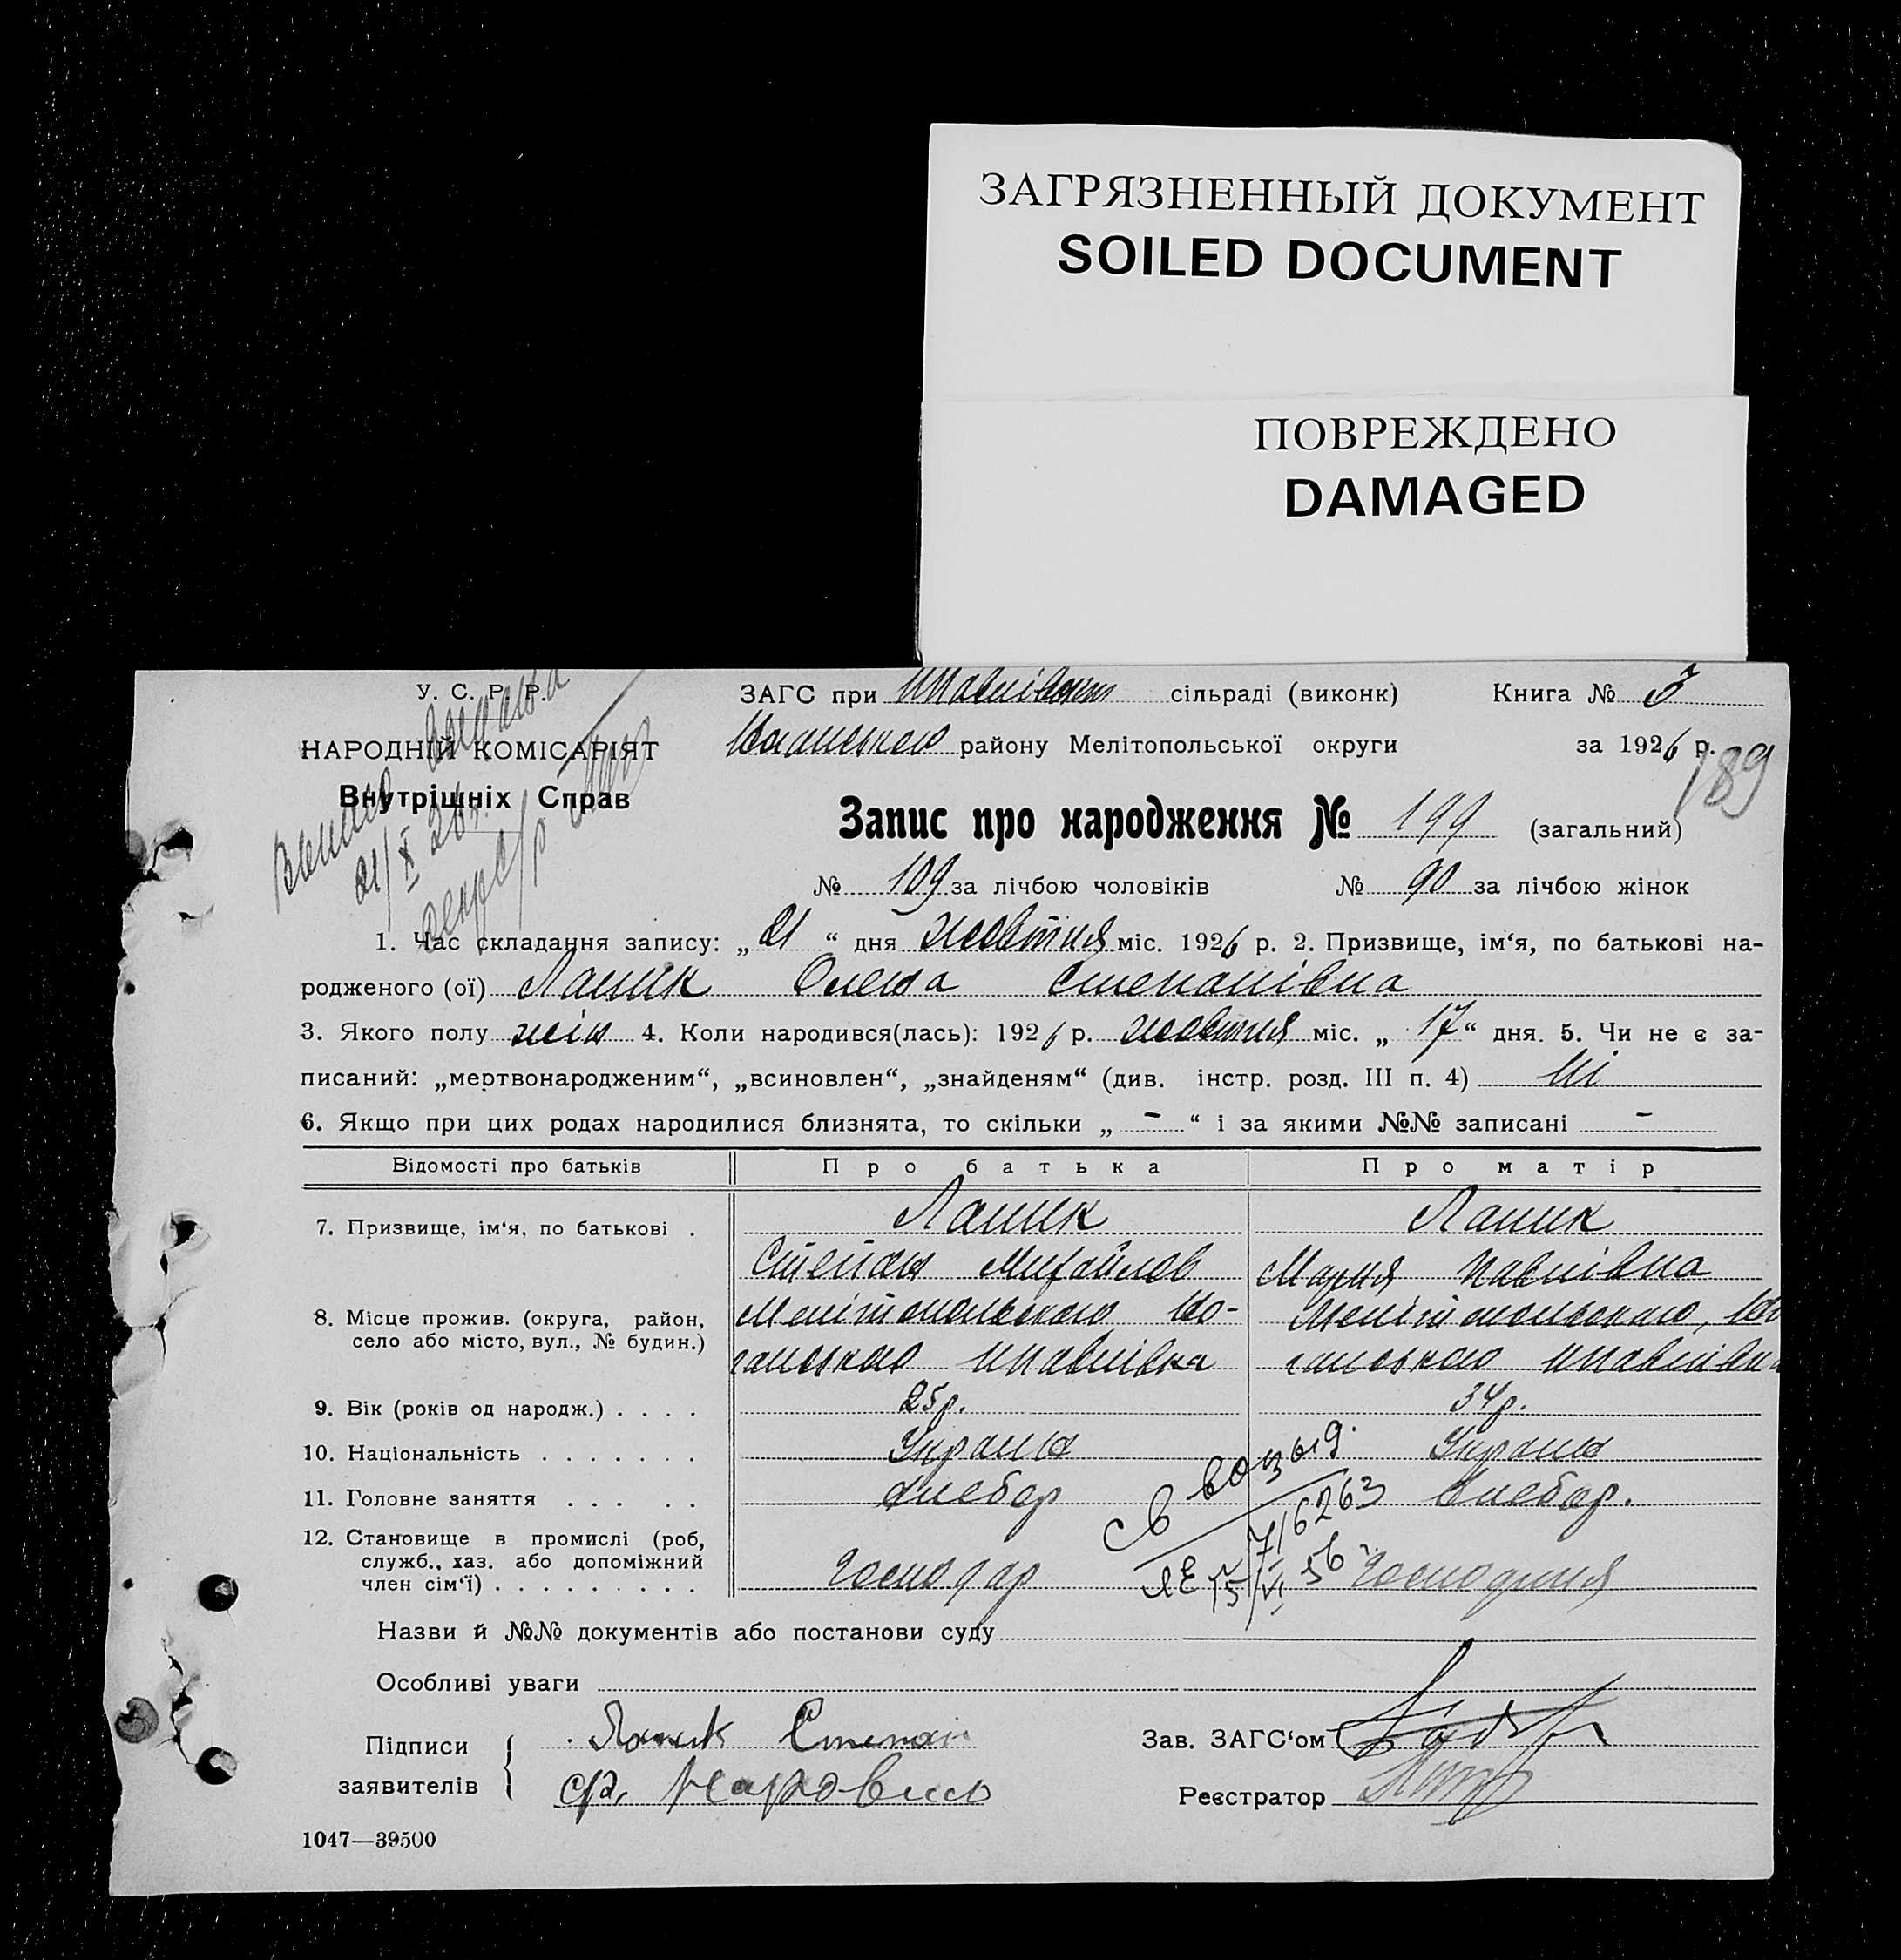 ЗАГРЯЗНЕННЫЙ ДОКУМЕНТ
SOILED DOCUMENT
ПОВРЕЖДЕНО
DAMAGED
У. С. Р. Р.
НАРОДНІЙ КОМІСАРІЯТ
Внутрішніх Справ
ЗАГС при сільраді (виконк) Книга № 3
району Мелітопольської округи за 1926 р.
189
Запис про народження № 199 (загальний)
№ 109 за лічбою чоловіків № 90 за лічбою жінок
1. Час складання запису: „21“ дня жовтня міс. 1926 р. 2. Призвище, ім‘я, по батькові на-
родженого (ої) Олена Степанівна
3. Якого полу жін 4. Коли народився(лась): 1926 р. жовтня міс. „17“ дня. 5. Чи не є за-
писаний: „мертвонародженим“, „всиновлен“, „знайденям“ (див. інстр. розд. III п. 4) Ні
6. Якщо при цих родах народилися близнята, то скільки „ - “ і за якими №№ записані -
Відомості про батьків Про батька Про матір
7. Призвище, ім‘я, по батькові .
Степан Михайлов Мария Павлівна
8. Місце прожив. (округа, район,
село або місто, вул., № будин.)
Мелітопольского Мелітопольского,
9. Вік (років од народж.) . . . . 25р. 34р.
10. Національність . . . . . . . Україн Україн
11. Головне заняття . . . . . хлебор хлебор.
12. Становище в промислі (роб,
служб., хаз. або допоміжний
член сім‘ї) . . . . . . . . . господар господиня
Назви й №№ документів або постанови суду
Особливі уваги
Підписи
заявителів
Степан
Зав. ЗАГС‘ом
Реєстратор
1047—39500